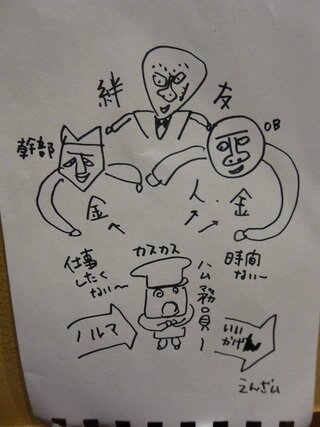 絆 友
幹部
OB
金
人、金
仕事
したく
ない〜
カスカス
ハム務員ー
時間
ない〜
ノルマ
いい
かげん
えんざい